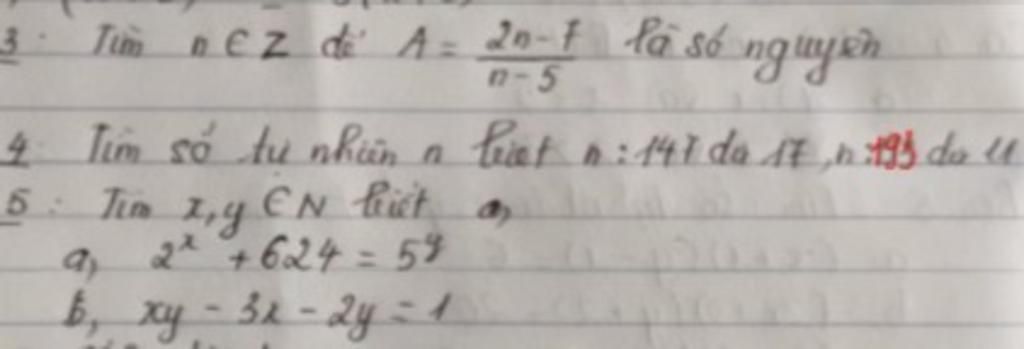 3. Tìm n ∈ Z để A = \frac{2n-7}{n-5} là số nguyên
4 Tìm số tự nhiên n biết n : 147 dư 17, n : 193 dư 11
5: Tìm x, y ∈ N biết a,
a, 2^x + 624 = 5^y
b, xy - 3x - 2y = 1